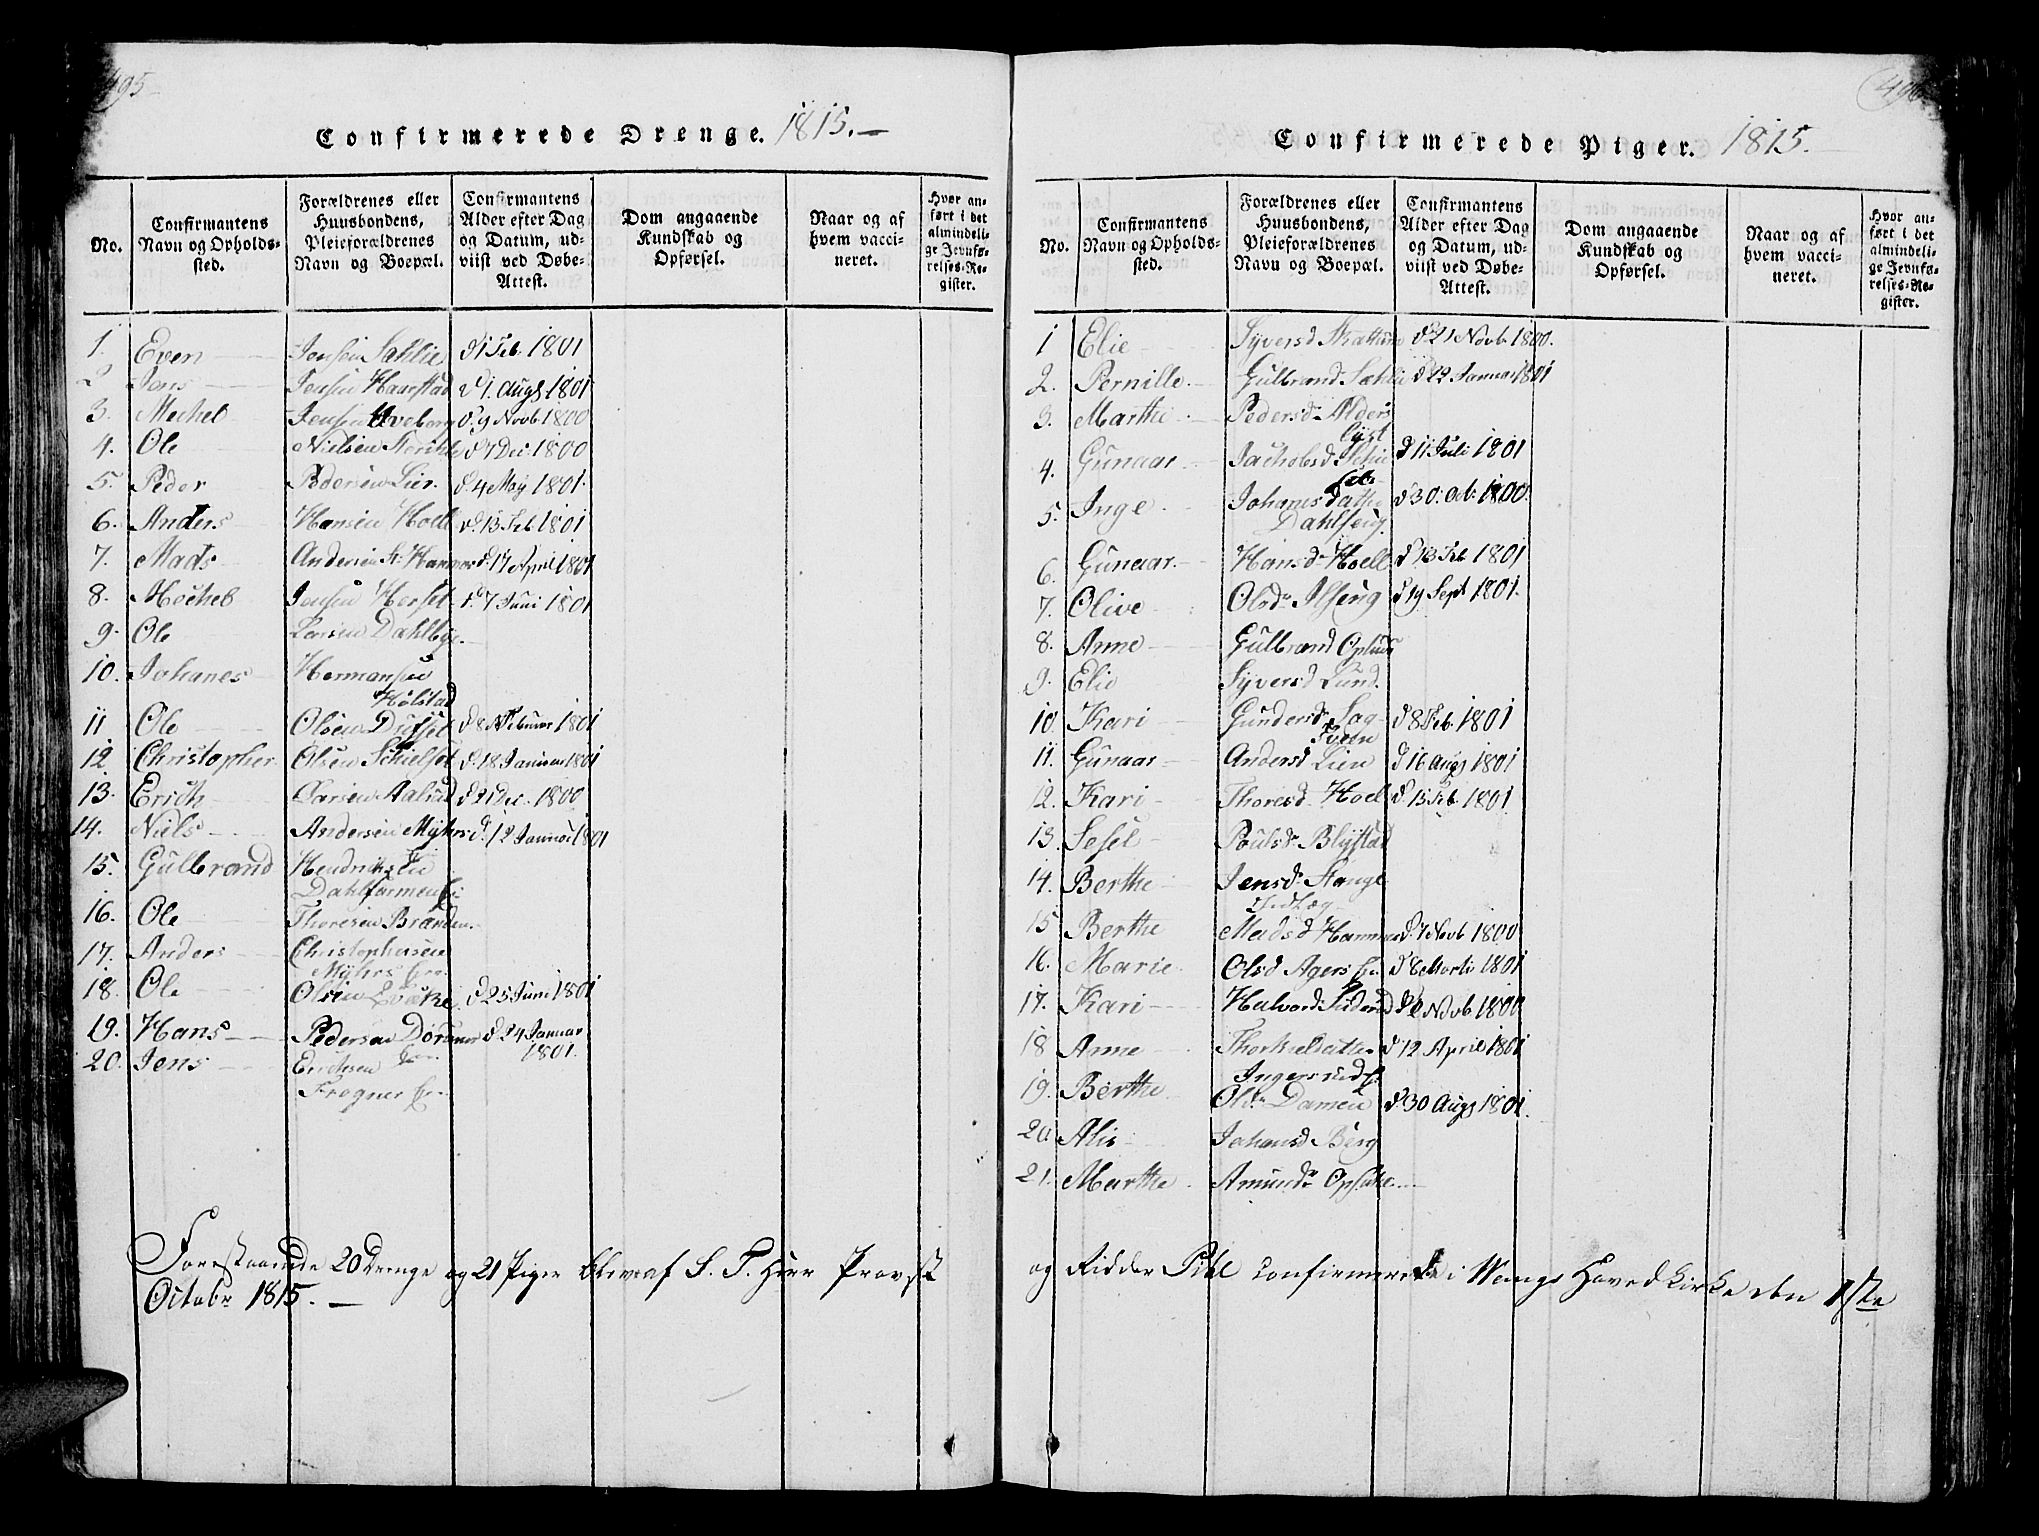 495
Confirmerede Drenge. 1815.
No.
Confirmantens Navn og Opholdssted.
Forældrenes eller Huusbondens, Pleieforældrenes Navn og Boepæl.
Confirmantens Alder efter Dag og Datum, udviist ved Døbe-Attest.
Dom angaaende Kundskab og Opførsel.
Naar og af hvem vaccineret.
Hvor anført i det almindelige Jevnførelses-Register.
1. Even Jensen Sahlie d 1 Feb 1801
2 Jens Jensen Haarstad d 1. Augs 1801
3. Mechel Jensen d. 9 Novb 1800
4. Ole Nielsen d 7 Dec 1800
5. Peder Pedersen Lier. d. 4 Maÿ 1801.
6. Anders Hansen Hoell d. 13 Feb 1801
7. Mads Andersen St. Hammer d. 17 April 1801
8. Mechel Jensen Herset d. 7 Juni 1801
9. Ole Larsen Dahlbye
10. Johanes Hermansen
Holstad
11 Ole Olsen d 8 Februar 1801
12 Christopher Olsen d. 18 Januar 1801
13. Erich Larsen Aalud d 21 Dec. 1800
14. Niels Andersen Mÿhrs d. 12 Januar 1801
15. Gulbrand
16. Ole Thoresen Branden.
17. Anders Christophersen
Mÿhrs
18. Ole Olsen d 25 Juni 1801
19. Hans Pedersen d. 24 Januar
1801.
20. Jens Erichsen
Frogner
Forestaaende 20 Drenge og 21 Piger bleve af S. T. Herr Provst
Octobr 1815.
496
Confirmerede Piger. 1815.
No.
Confirmantens Navn og Opholdssted.
Forældrenes eller Huusbondens, Pleieforældrenes Navn og Boepæl.
Confirmantens Alder efter Dag og Datum, udviist ved Døbe-Attest.
Dom angaaende Kundskab og Opførsel.
Naar og af hvem vaccineret.
Hvor anført i det almindelige Jevnførelses-Register.
1 Elie Syversd Skattum d 21 Novb 1800.
2. Pernille Gulbrand Sæhlie d 22 Januar 1801
3. Marthe Pedersd Alders
lyst
4. Gunaar Jachobsd d 11 Juli 1801
5. Inge Johanesdatter d 30. Oct. 1800.
Dahlseng
6. Gunaar Hansd Hoell d 13 Feb 1801
7. Olive Olsd Ilseng d 19 Sept 1801.
8. Anne Gulbrand
9. Elie Syversd Lund.
10. Kari Gundersd Sag- d 8 Feb 1801
11. Gunaar Andersd Lien d 16 Augs 1801
12. Kari Thoresd Hoel d. 15 Feb. 1801
13. Sesel Poulsd Blÿstad
14. Berthe Jensd. Stange
15 Berthe Madsd Hammer d. 7 Novb 1800
16. Marie Olsd Agers d 8 Marti 1801
17. Kari Halvord Novb 1800
18 Anne d 12 April 1801
Ingersrud
19. Berthe Olsd. Damen d. 30 Augs 1801.
20 Alis Johansd Berg
21. Marthe Amundsd Opsahl
og Ridder Pihl confirmerede i Wangs Hovedkirke den 1ste